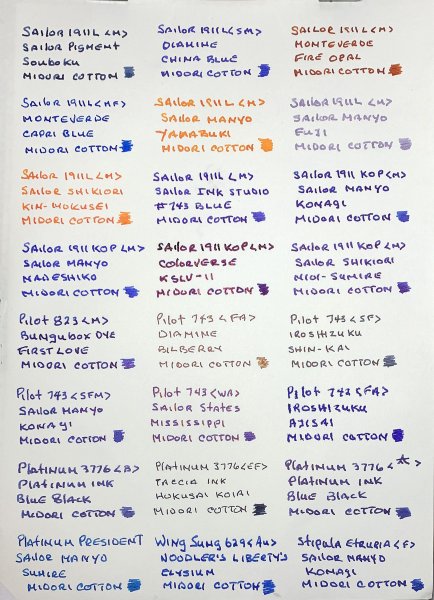 Sailor 1911L <M>
Sailor Pigment
Souboku
Midori Cotton
Sailor 1911L <SM>
Diamine
China Blue
Midori Cotton
Sailor 1911L <M>
Monteverde
Fire Opal
Midori Cotton
Sailor 1911L <MF>
Monteverde
Capri Blue
Midori Cotton
Sailor 1911L <M>
Sailor Manyo
Yamabuki
Midori Cotton
Sailor 1911L <M>
Sailor Manyo
Fuji
Midori Cotton
Sailor 1911L <M>
Sailor Shikiori
Kin-Mokusei
Midori Cotton
Sailor 1911L <M>
Sailor Ink Studio
#743 Blue
Midori Cotton
Sailor 1911 KOP <M>
Sailor Manyo
Konagi
Midori Cotton
Sailor 1911 KOP <M>
Sailor Manyo
Nadeshiko
Midori Cotton
Sailor 1911 KOP <M>
Colorverse
KSLV-II
Midori Cotton
Sailor 1911 KOP <M>
Sailor Shikiori
Nioi-Sumire
Midori Cotton
Pilot 823 <M>
Bungubox Dye
First Love
Midori Cotton
Pilot 743 <FA>
Diamine
Bilberry
Midori Cotton
Pilot 743 <SF>
Iroshizuku
Shin-Kai
Midori Cotton
Pilot 743 <SFM>
Sailor Manyo
Konagi
Midori Cotton
Pilot 743 <WA>
Sailor States
Mississippi
Midori Cotton
Pilot 742 <FA>
Iroshizuku
Ajisai
Midori Cotton
Platinum 3776 <B>
Platinum Ink
Blue Black
Midori Cotton
Platinum 3776 <EF>
Taccia Ink
Hokusai Koiai
Midori Cotton
Platinum 3776 <☆>
Platinum Ink
Blue Black
Midori Cotton
Platinum President
Sailor Manyo
Sumire
Midori Cotton
Wing Sung 629 <Au>
Noodler's Liberty's
Elysium
Midori Cotton
Stipula Etruria <F>
Sailor Manyo
Konagi
Midori Cotton